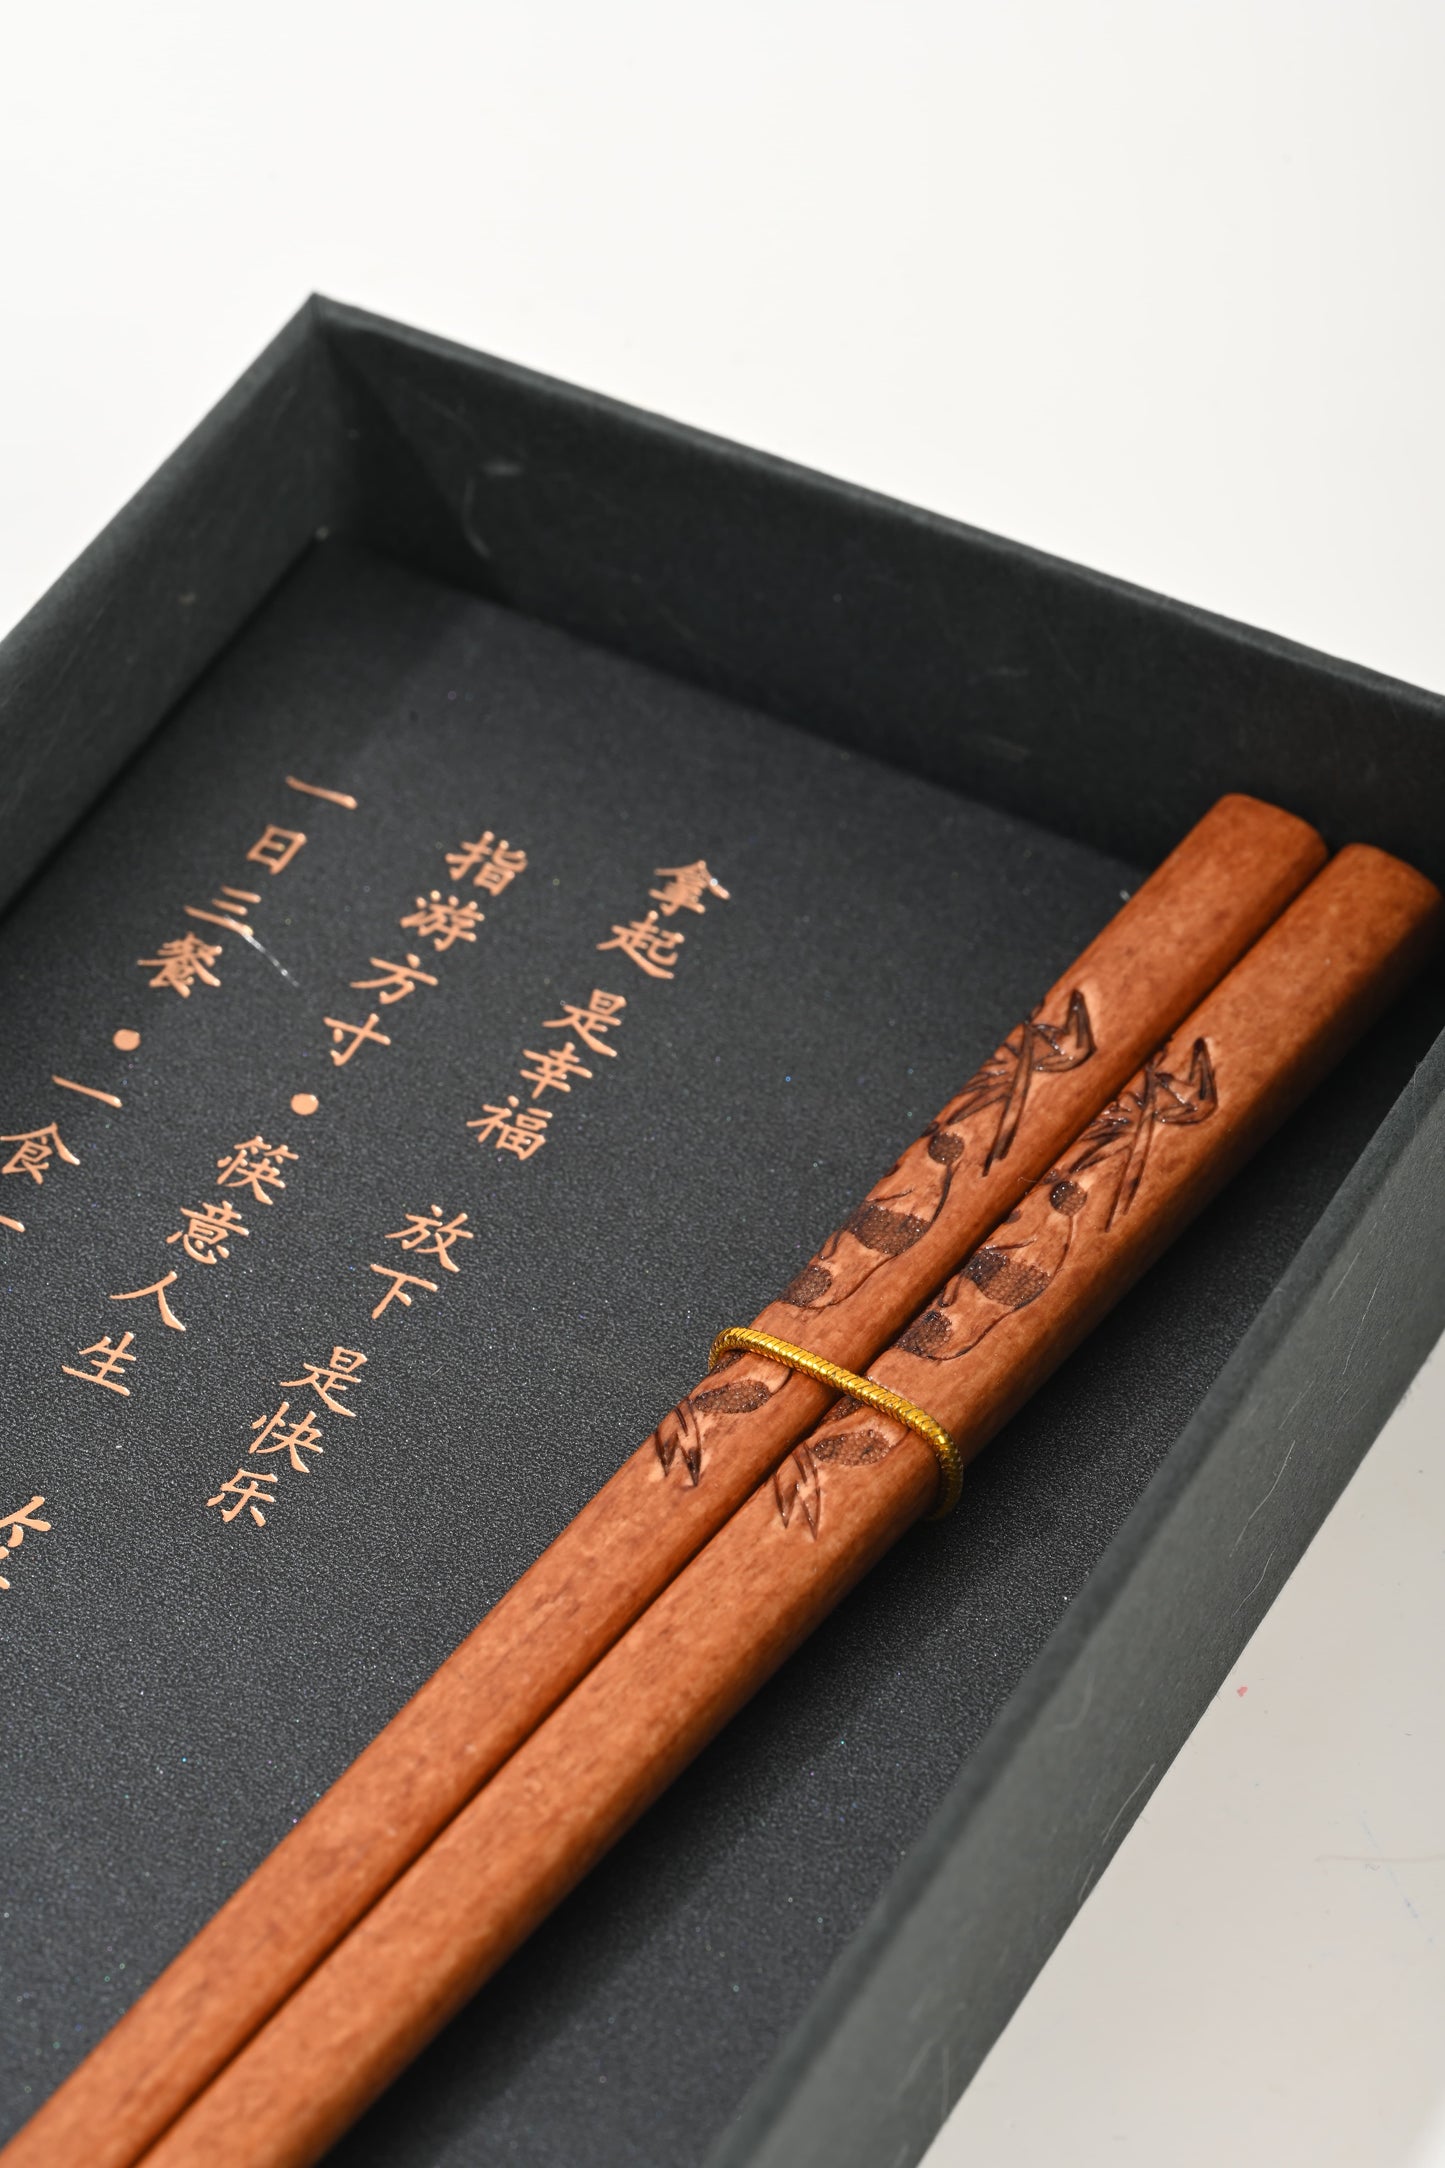 拿起 是幸福 放下 是快乐
指游方寸·筷意人生
一日三餐·一食一